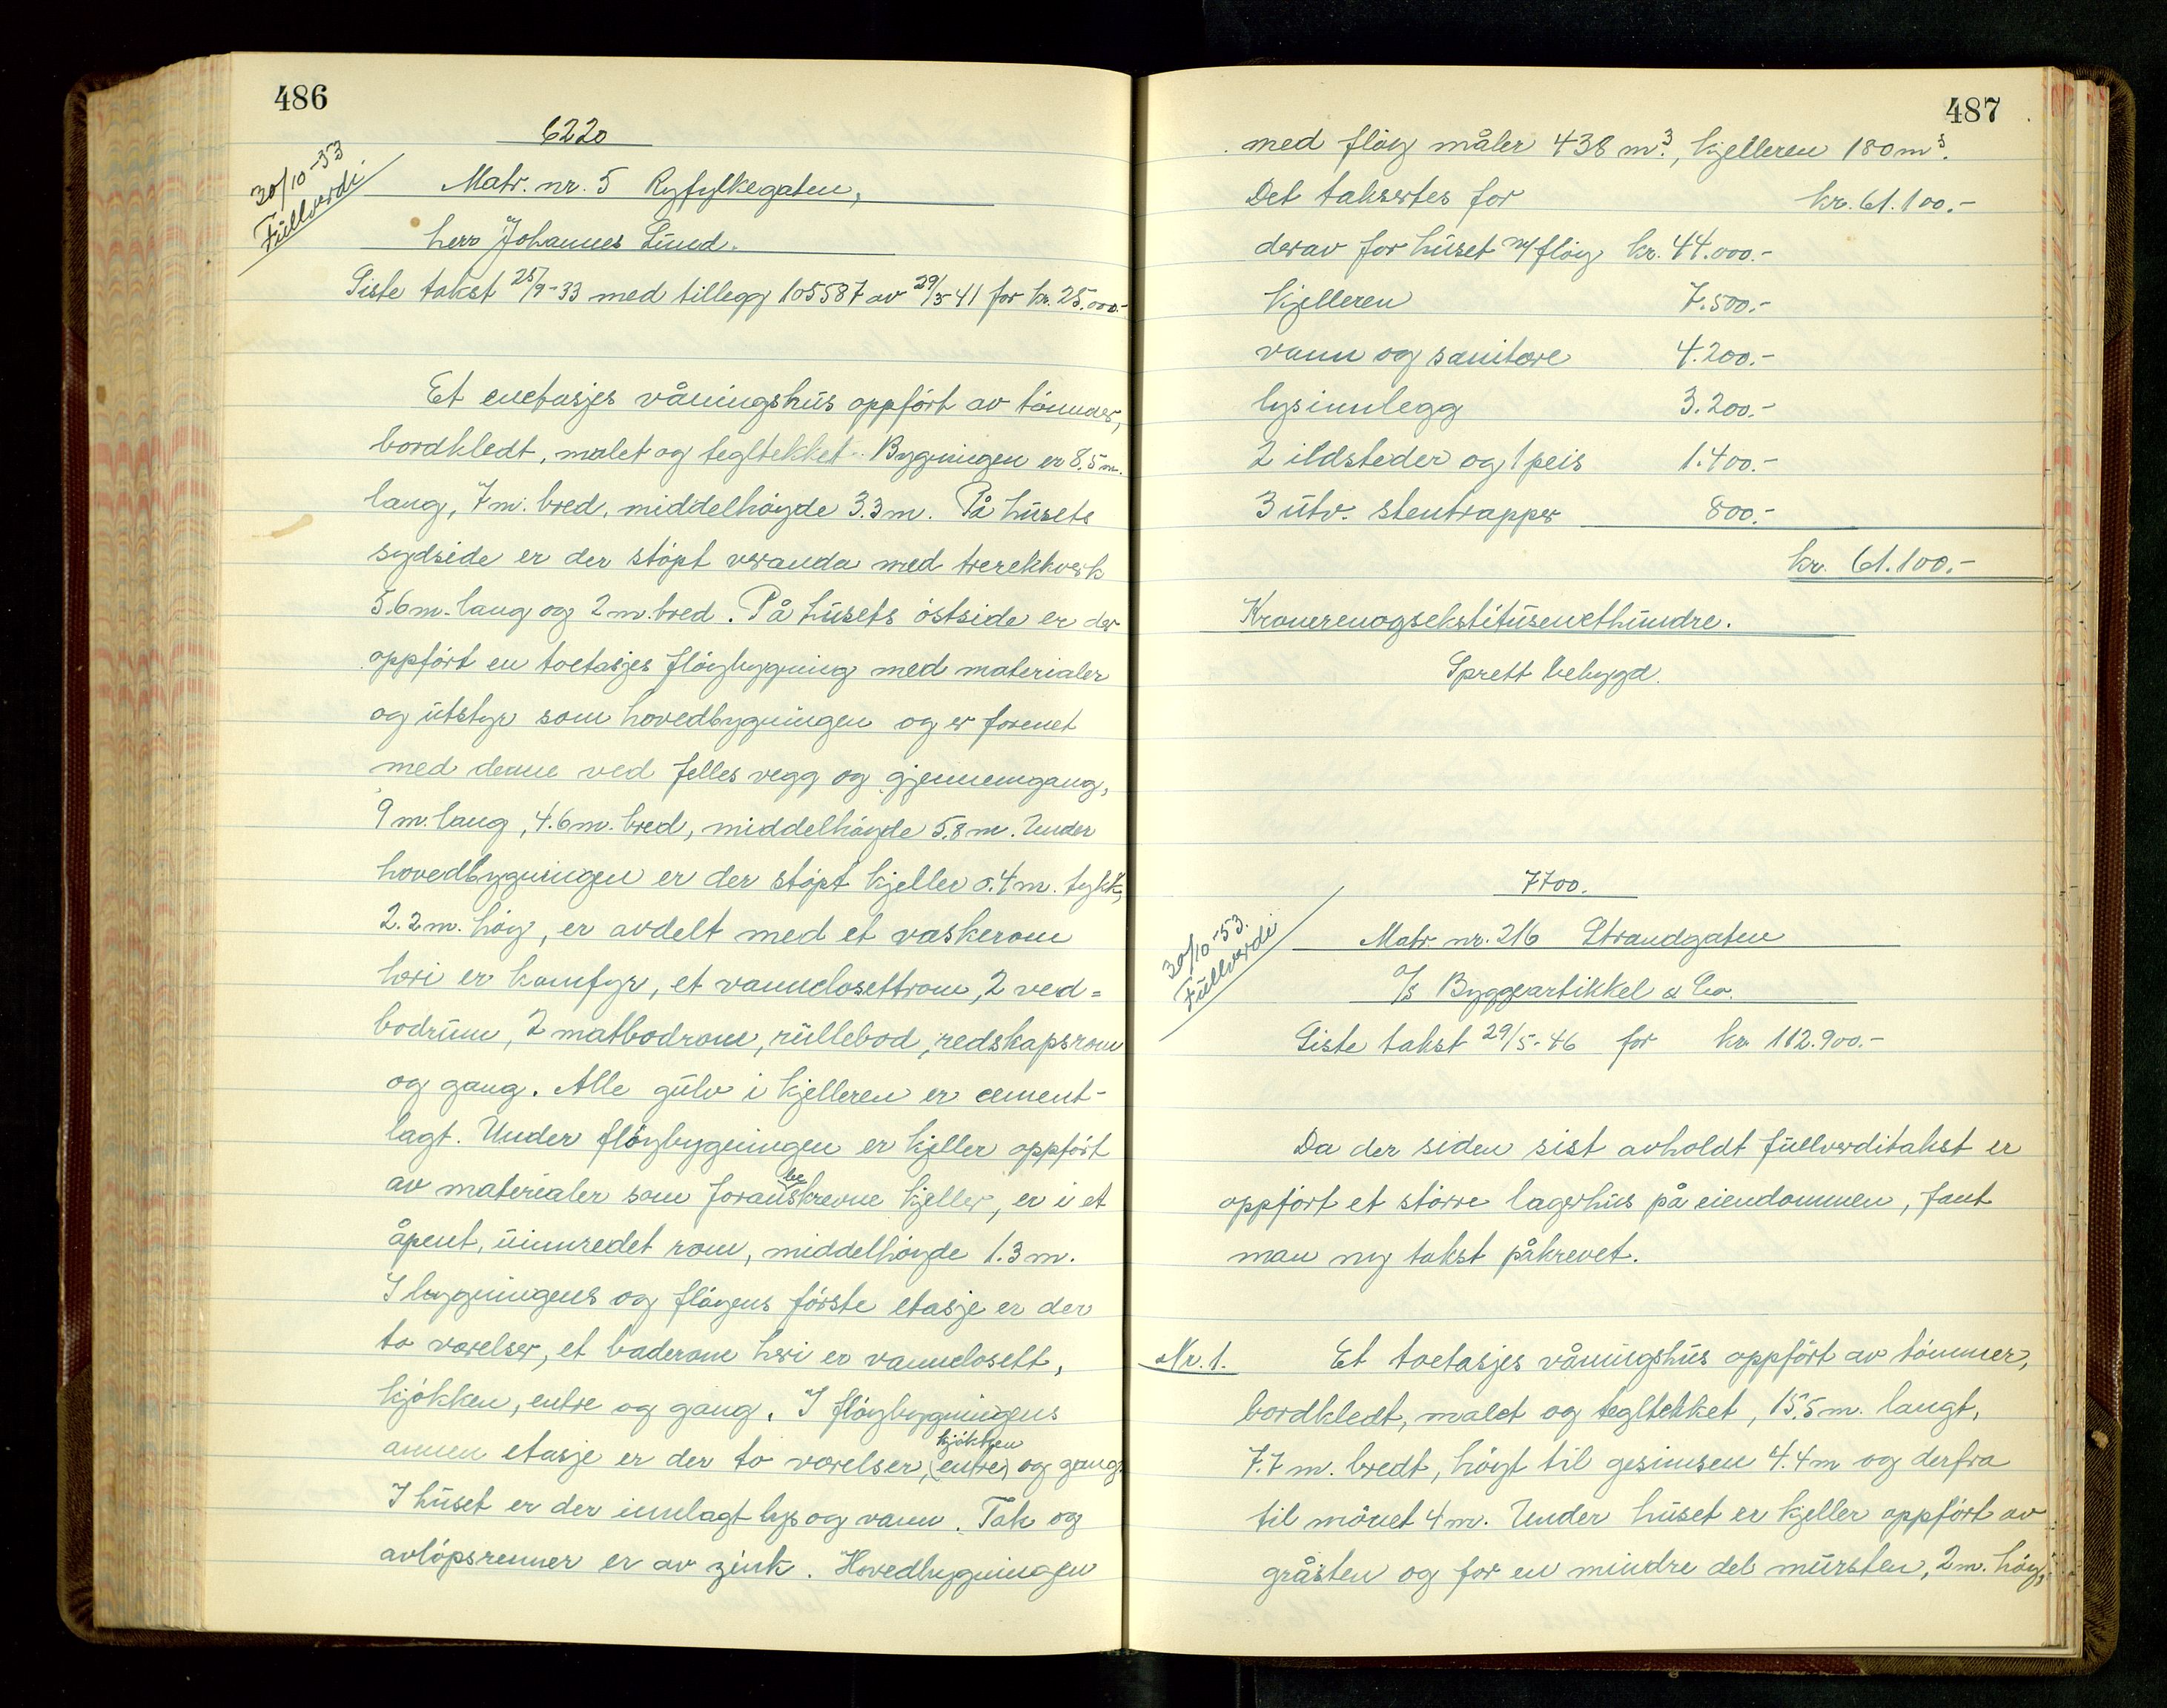 486
6220
30/10-53
Fullverdi
Matr. nr. 5 Ryfylkegaten,
herr Johannes Lund.
Siste takst 25/9-33 med tillegg 105587 av 29/5-41 for kr. 25.000.-
Et enetasjes våningshus oppført av tømmer,
bordkledt, malet og tegltekket. Bygningen er 8.5 m.
lang, 7 m. bred, middelhøyde 3.3 m. På husets
sydside er der støpt veranda med trerekkverk
5.6 m. lang og 2 m. bred. På husets østside er der
oppført en toetasjes fløybygning med materialer
og utstyr som hovedbygningen og er forenet
med denne ved felles vegg og gjennemgang,
9 m. lang, 4.6 m. bred, middelhøyde 5.8 m. Under
hovedbygningen er der støpt kjeller 0.4 m. tykk,
2.2 m. høy, er avdelt med et vaskerom
hvri er komfyr, et vannclosettrom, 2 ved=
bodrum, 2 matbodrom, rullebod, redskapsrom
og gang. Alle gulv i kjelleren er cement-
lagt. Under fløybygningen er kjeller oppført
av materialer som foranbeskrevne kjeller, er i et
åpent, uinnredet rom, middelhøyde 1.3 m.
I bygningens og fløyens første etasje er der
to værelser, et baderom hvri er vannclosett,
kjøkken, entre og gang. I fløybygningens
annen etasje er der to værelser, (entre) kjøkken og gang.
I huset er der innlagt lys og vann. Tak og
avløpsrenner er av zink. Hovedbygningen
487
med fløy måler 438 m³., kjelleren 180 m³.
Det takseres for kr. 61.100.-
derav for huset m/fløy kr. 44.000.-
kjelleren 7.500.-
vann og sanitære 4.200.-
lysinnlegg 3.200.-
2 ildsteder og 1 peis 1.400.-
3 utv. stentrapper 800.-
kr. 61.100.-
Kronerenogsekstitusenethundre.
Sprett bebygd.
7700.
30/10-53.
Fullverdi
Matr. nr. 216 Strandgaten
A/S Byggeartikkel & Co.
Siste takst 29/5-46 for kr. 112.900.-
Da der siden sist avholdt fullverditakst er
oppført et større lagerhus på eiendommen, fant
man ny takst påkrevet.
Nr. 1. Et toetasjes våningshus oppført av tømmer,
bordkledt, malet og tegltekket, 15.5 m. langt,
7.7 m. bredt, høyt til gesimsen 4.4 m og derfra
til mønet 4 m. Under huset er kjeller oppført av
gråsten og for en mindre del mursten, 2 m. høy,